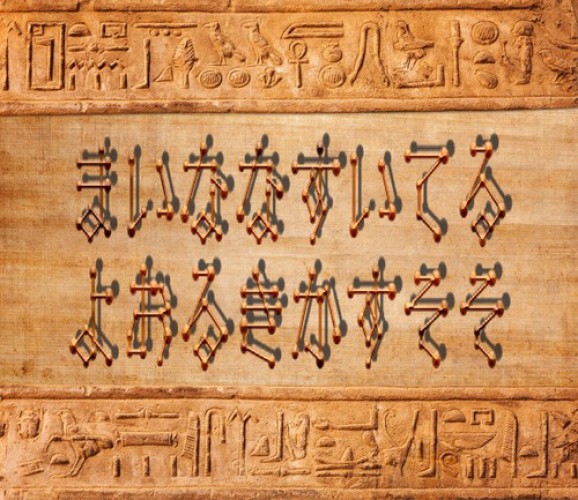 まいななすいてる
よあるきかすそそ